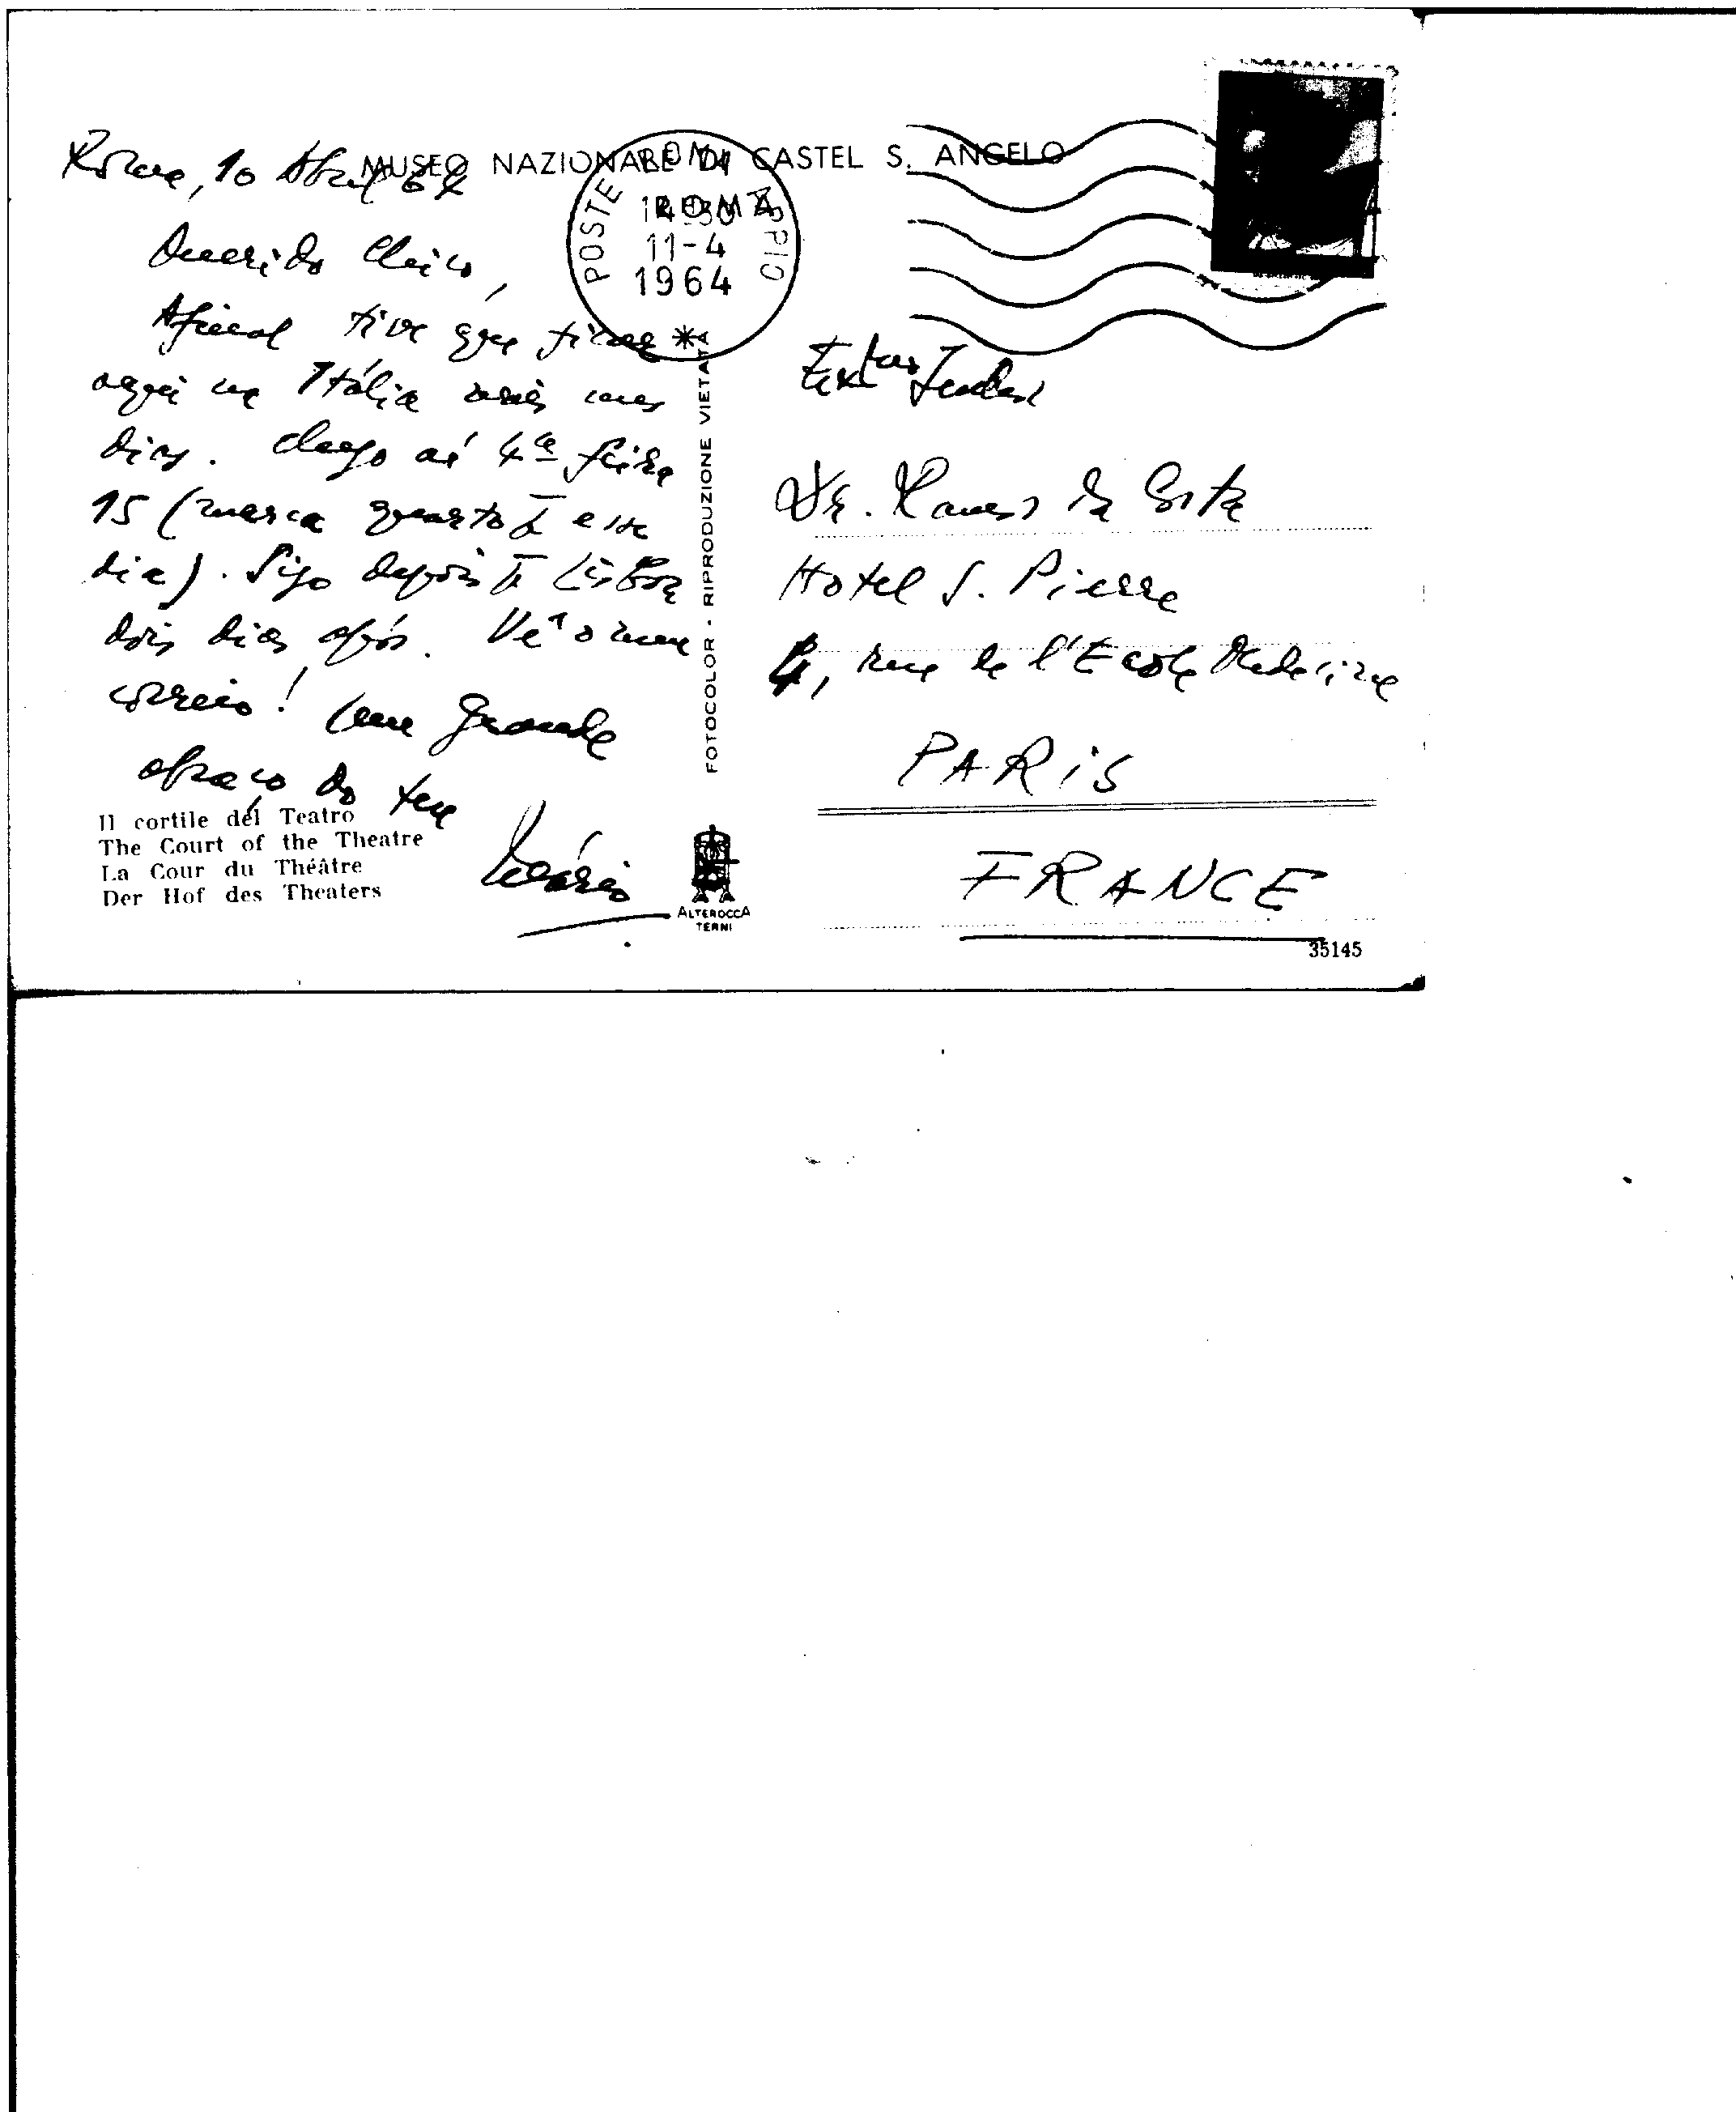 MUSEO NAZIONALE DI CASTEL S. ANGELO
ROMA
Roma, 10 Abril 64
Querido Chico,
Afinal tive que ficar
aqui na Itália mais uns
dias. Chego aí 4ª feira
15 (marca quarto p/ esse
dia). Sigo depois p/ Lisboa
dois dias após. Vê o meu
correio! Um grande
abraço do teu
Mário
Il cortile del Teatro
The Court of the Theatre
La Cour du Théâtre
Der Hof des Theaters
POSTE ROMA APPIO
11-4
1964
FOTOCOLOR - RIPRODUZIONE VIETATA
ALTEROCCA
TERNI
Dr. Ramos da Costa
Hotel S. Pierre
4, rue de l'Ecole Medecine
PARIS
FRANCE
35145